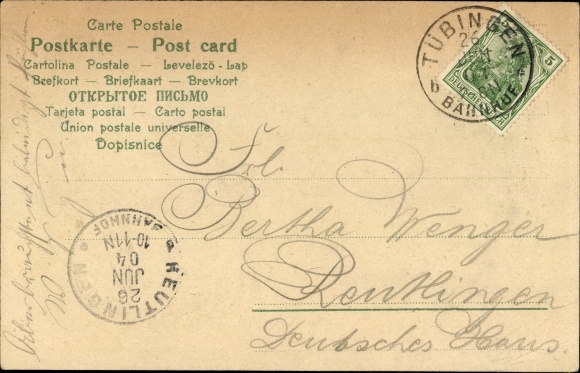 Carte Postale
Postkarte — Post card
Cartolina Postale — Levelező-Lap
Brefkort — Briefkaart — Brevkort
ОТКРЫТОЕ ПИСЬМО
Tarjeta postal — Carto postal
Union postale universelle
Dopisnice
TÜBINGEN
26
b BAHNHOF
5
Frl.
Bertha Wenger
Reutlingen
Deutsches Haus.
REUTLINGEN
BAHNHOF
26
JUN
04
10-11N